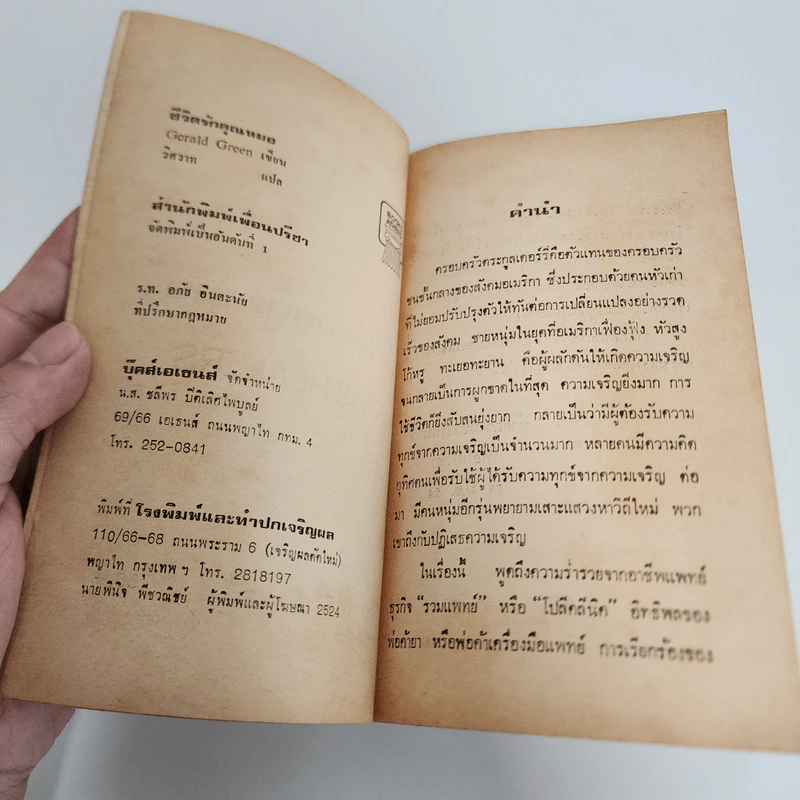 ชีวิตรักคุณหมอ
Gerald Green เขียน
วิศวาท แปล
สำนักพิมพ์เพื่อนปรีชา
จัดพิมพ์เป็นอันดับที่ 1
ร.ท. อภัย อินตะนัย
ที่ปรึกษากฎหมาย
บุ๊คส์เอเธนส์ จัดจำหน่าย
น.ส. ชลีพร ปีติเลิศไพบูลย์
69/66 เอเธนส์ ถนนพญาไท กทม. 4
โทร. 252-0841
พิมพ์ที่ โรงพิมพ์และทำปกเจริญผล
110/66-68 ถนนพระราม 6 (เจริญผลตัดใหม่)
พญาไท กรุงเทพฯ โทร. 2818197
นายพินิจ พืชวณิชย์ ผู้พิมพ์และผู้โฆษณา 2524
คำนำ
ครอบครัวตระกูลเดอร์รี่คือตัวแทนของครอบครัว
ชนชั้นกลางของสังคมอเมริกา ซึ่งประกอบด้วยคนหัวเก่า
ที่ไม่ยอมปรับปรุงตัวให้ทันต่อการเปลี่ยนแปลงอย่างรวด
เร็วของสังคม ชายหนุ่มในยุคที่อเมริกาเฟื่องฟุ้ง หัวสูง
โก้หรู ทะเยอทะยาน คือผู้ผลักดันให้เกิดความเจริญ
จนกลายเป็นการผูกขาดในที่สุด ความเจริญยิ่งมาก การ
ใช้ชีวิตก็ยิ่งสับสนยุ่งยาก กลายเป็นว่ามีผู้ต้องรับความ
ทุกข์จากความเจริญเป็นจำนวนมาก หลายคนมีความคิด
อุทิศตนเพื่อรับใช้ผู้ได้รับความทุกข์จากความเจริญ ต่อ
มา มีคนหนุ่มอีกรุ่นพยายามเสาะแสวงหาวิถีใหม่ พวก
เขาถึงกับปฏิเสธความเจริญ
ในเรื่องนี้ พูดถึงความร่ำรวยจากอาชีพแพทย์
ธุรกิจ “รวมแพทย์” หรือ “โปลีคลีนิค” อิทธิพลของ
พ่อค้ายา หรือพ่อค้าเครื่องมือแพทย์ การเรียกร้องของ